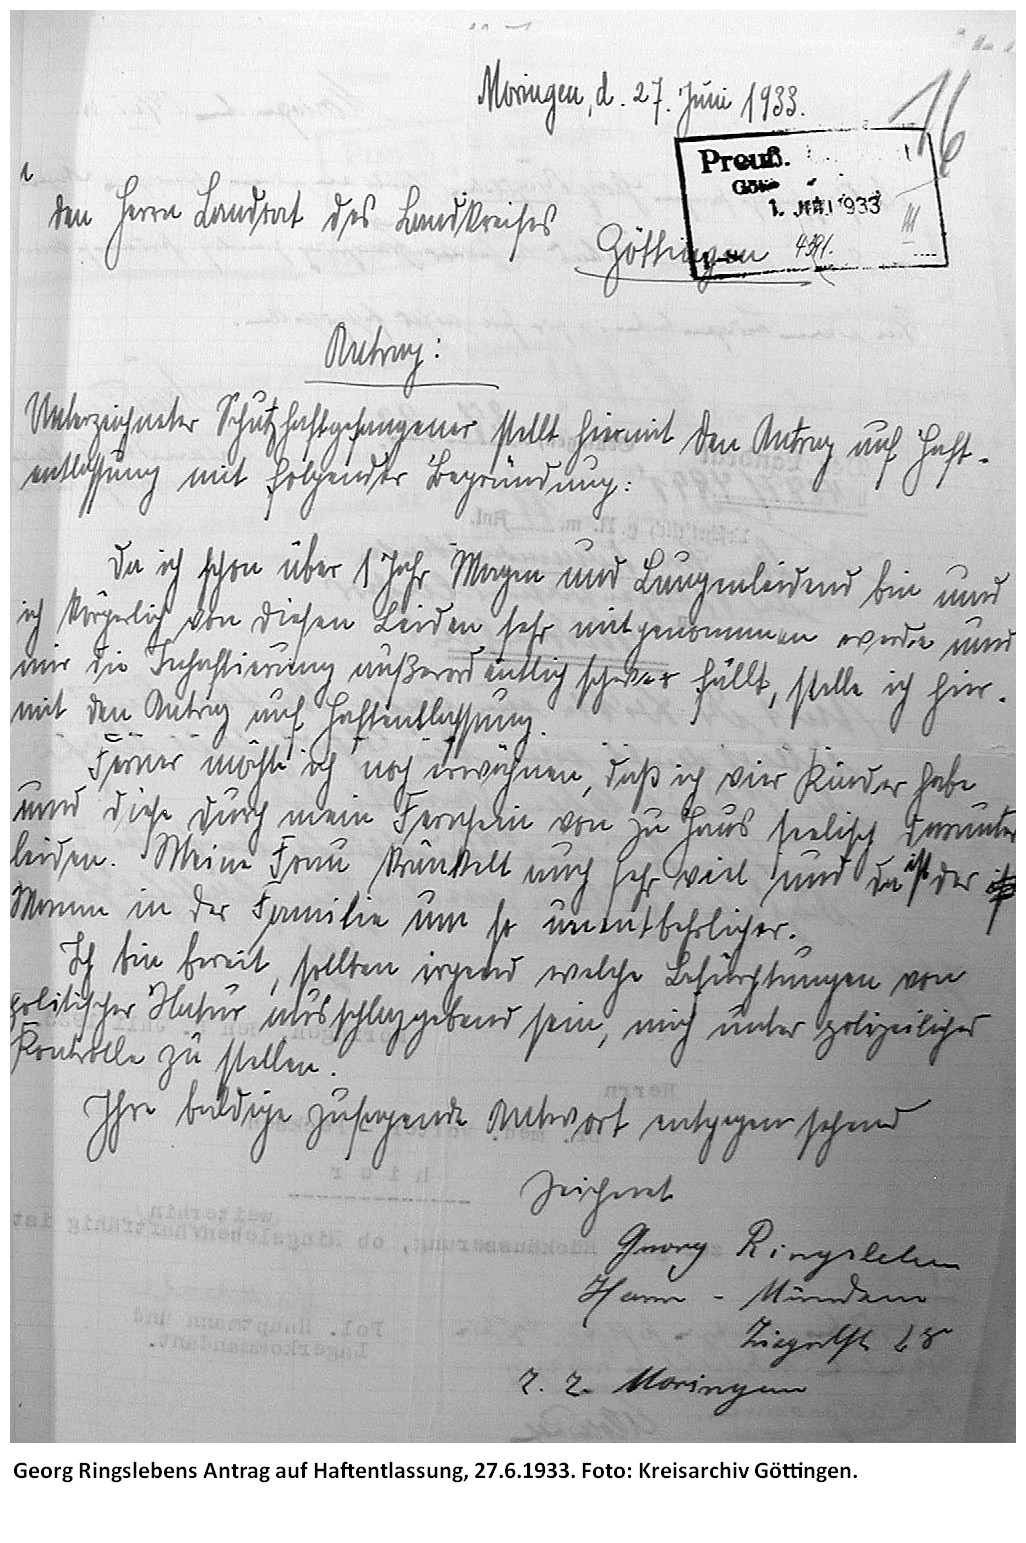 Moringen, d. 27. Juni 1933.
16
Preuß.
1. JULI 1933
III
4391.
den Herrn Landrat des Landkreises
Göttingen
Antrag:
Unterzeichneter Schutzhaftgefangener stellt hiermit den Antrag auf Haft-
entlassung mit folgender Begründung:
Da ich schon über 1 Jahr Magen und Lungenleidend bin und
ich körperlich von diesen Leiden sehr mitgenommen werde und
mir die Inhaftierung außerordentlich schwer fällt, stelle ich hier-
mit den Antrag auf Haftentlassung.
Ferner möchte ich noch erwähnen, daß ich vier Kinder habe
und diese durch mein Fernsein von zu Haus seelisch darunter
leiden. Meine Frau kränkelt auch sehr viel und da ist der
Mann in der Familie um so unentbehrlicher.
Ich bin bereit, sollten irgend welche Befürchtungen von
politischer Natur ausschlaggebend sein, mich unter polizeilicher
Kontrolle zu stellen.
Ihre baldige zusagende Antwort entgegen sehend
zeichnet
Georg Ringsleben
Hann - Münden
Ziegelst 28
z. Z. Moringen
Georg Ringslebens Antrag auf Haftentlassung, 27.6.1933. Foto: Kreisarchiv Göttingen.